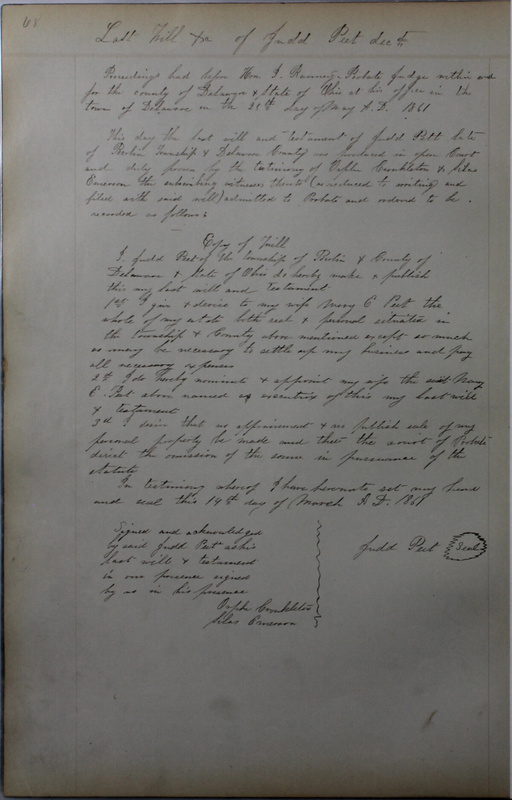 68
Last Will &c of Judd Peet decd.
Proceedings had before Hon Ranney Probate Judge within and
for the county of Delaware & State of Ohio at his office in the
town of Delaware on the 25th day of May A.D. 1861
This day the last will and testament of Judd Peet late
of Berlin Township & Delaware County was produced in open Court
and duly proven by the testimony of & Silas
Emerson the subscribing witnesses thereto (as reduced to writing and
filed with said will) admitted to Probate and ordered to be
recorded as follows:
Copy of Will
I, Judd Peet of the township of Berlin & County of
Delaware & State of Ohio do hereby make & publish
this my last will and testament
1st I give & devise to my wife Mary E Peet the
whole of my estate both real & personal situated in
the township & County above mentioned except so much
as may be necessary to settle up my business and pay
all necessary expenses
2nd I do hereby nominate & appoint my wife the said Mary
E. Peet above named as executrix of this my last will
& testament
3rd I desire that no appraisement & no publick sale of my
personal property be made and that the court of Probate
direct the omission of the same in pursuance of the
statute
In testimony whereof I have hereunto set my hand
and seal this 14th day of March A.D. 1861
Signed and acknowledged
by said Judd Peet as his
last will & testament
in our presence signed
by us in his presence
Judd Peet Seal
Silas Emerson